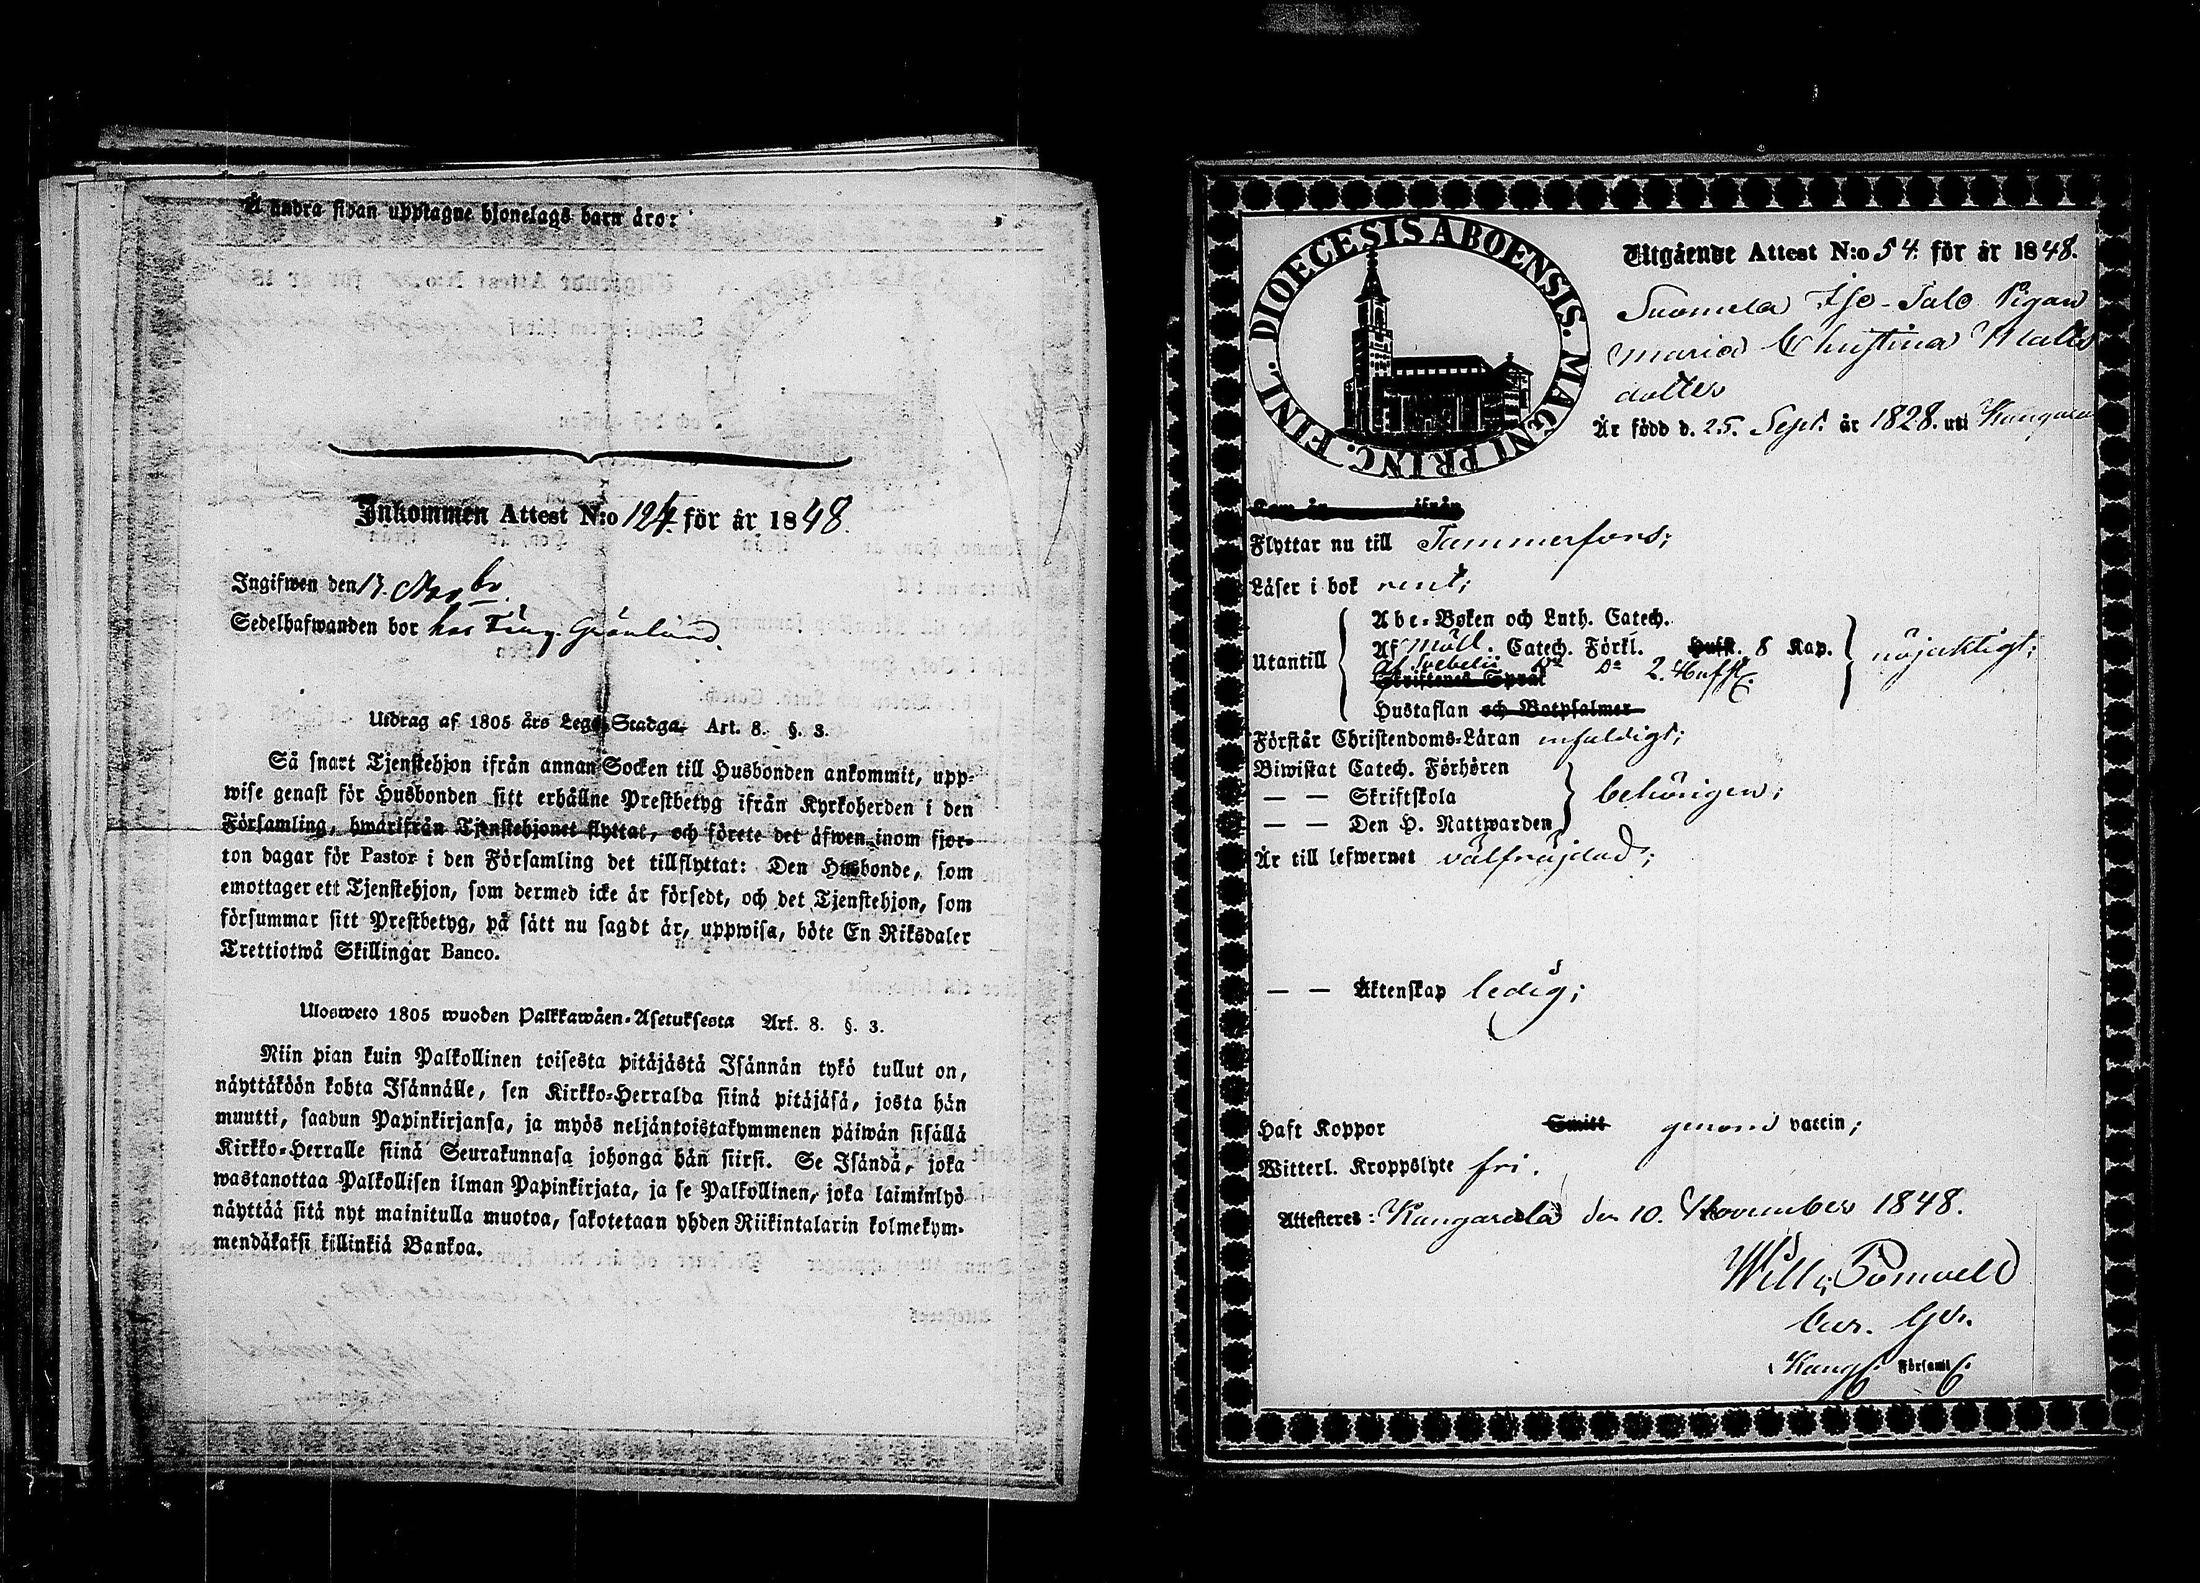 Å andra sidan upptagne hjonelags barn äro:
Inkommen Attest N:o 124 för år 1848.
Ingifwen den 13. Novbr.
Sedelhafwanden bor hos Grönlund.
Utdrag af 1805 års Lego-Stadga. Art. 8. §. 3.
Så snart Tjenstehjon ifrån annan Socken till Husbonden ankommit, upp-
wise genast för Husbonden sitt erhållne Prestbetyg ifrån Kyrkoherden i den
Församling, hwarifrån Tjenstehjonet flyttat, och förete det äfwen inom fjor-
ton dagar för Pastor i den Församling det tillflyttat: Den Husbonde, som
emottager ett Tjenstehjon, som dermed icke är försedt, och det Tjenstehjon, som
försummar sitt Prestbetyg, på sätt nu sagdt är, uppwisa, böte En Riksdaler
Trettiotwå Skillingar Banco.
Ulosweto 1805 wuoden Palkkawäen-Asetuksesta Art. 8. §. 3.
Niin pian kuin Palkollinen toisesta pitäjästä Isännän tykö tullut on,
näyttäköön kohta Isännälle, sen Kirkko-Herralda siinä pitäjäsä, josta hän
muutti, saadun Papinkirjansa, ja myös neljäntoistakymmenen päiwän sisällä
Kirkko-Herralle siinä Seurakunnasa johonga hän siirsi. Se Isändä, joka
wastanottaa Palkollisen ilman Papinkirjata, ja se Palkollinen, joka laiminlyö
näyttää sitä nyt mainitulla muotoa, sakotetaan yhden Riikintalarin kolmekym-
mendäkaksi killinkiä Bankoa.
DIOECESIS ABOENSIS. MAGNI PRINC. FINL.
Utgående Attest N:o 54. för år 1848.
Suomela Iso-Talo Pigan
Maria Christina Matts
dotter
Är född d. 25. Sept. år 1828. uti Kangasa
Kom år ifrån
Flyttar nu till Tammerfors;
Läser i bok rent;
Utantill
Abc-Boken och Luth. Catech.
Af Möll. Catech. Förkl. Hufst. 8 Kap.
Af Svebelii Do Do 2. Hufst.
Skriftenes Språk
Hustaflan och Botpsalmer
nöjaktigt;
Förstår Christendoms-Läran enfaldigt;
Biwistat Catech. Förhören
— — Skriftskola
— — Den H. Nattwarden
behörigen;
Är till lefwernet välfräjdad;
— — Äktenskap ledig;
Haft Koppor Smitt genom vaccin;
Witterl. Kroppslyte fri.
Attesteres: Kangasala den 10. November 1848.
Wilh.
Kang. Församl.